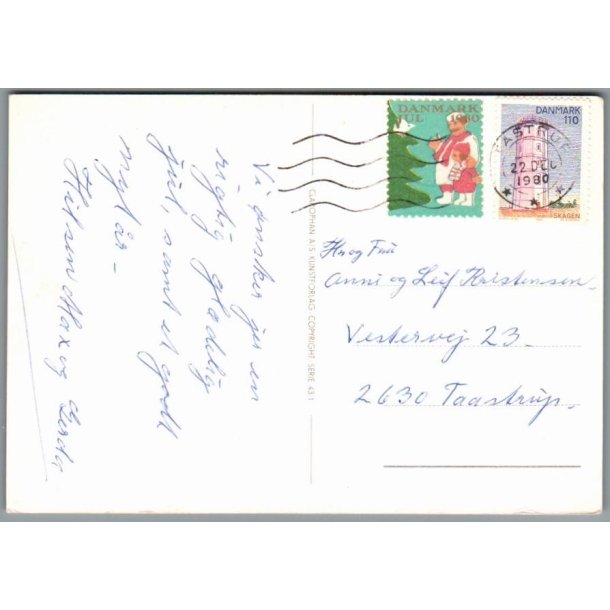 DANMARK
JUL 1980
DANMARK
110
SKAGEN
TÅSTRUP
22 DEC
1980
Vi ønsker jer en
rigtig glædelig
jul, samt et godt
nytår –
Hilsen Max og Gerda
CLAUSHAN A/S KUNSTFORLAG. COPYRIGHT SERIE 431
Hr og Fru
Anni og Leif Kristensen
Vestervej 23.
2630 Taastrup.